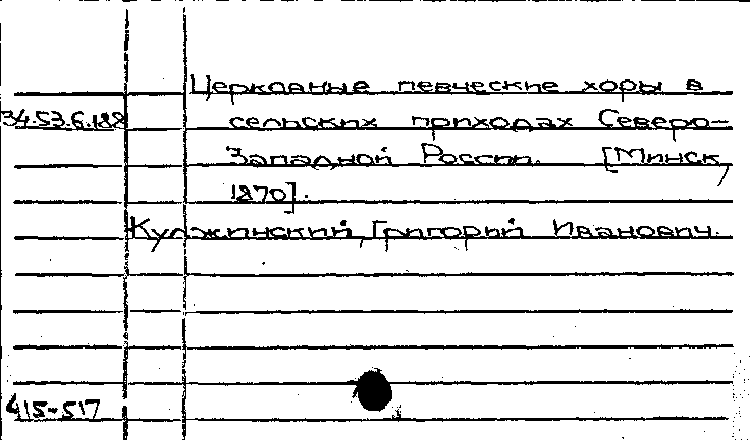 Церковные певческие хоры в
34.53.6.188 сельских приходах Северо-
Западной России. [Минск,
1870].
Кулжинский, Григорий Иванович.
415-517